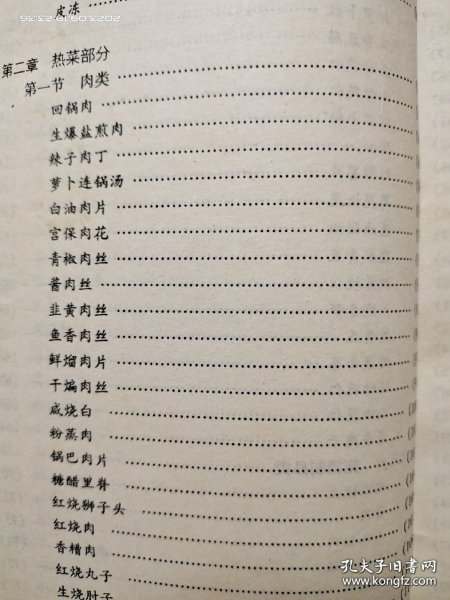 皮冻
第二章 热菜部分
第一节 肉类
回锅肉
生爆盐煎肉
辣子肉丁
萝卜连锅汤
白油肉片
宫保肉花
青椒肉丝
酱肉丝
韭黄肉丝
鱼香肉丝
鲜熘肉片
干煸肉丝
咸烧白
粉蒸肉
锅巴肉片
糖醋里脊
红烧狮子头
红烧肉
香糟肉
红烧丸子
生烧肘子
孔夫子旧书网
www.kongfz.com